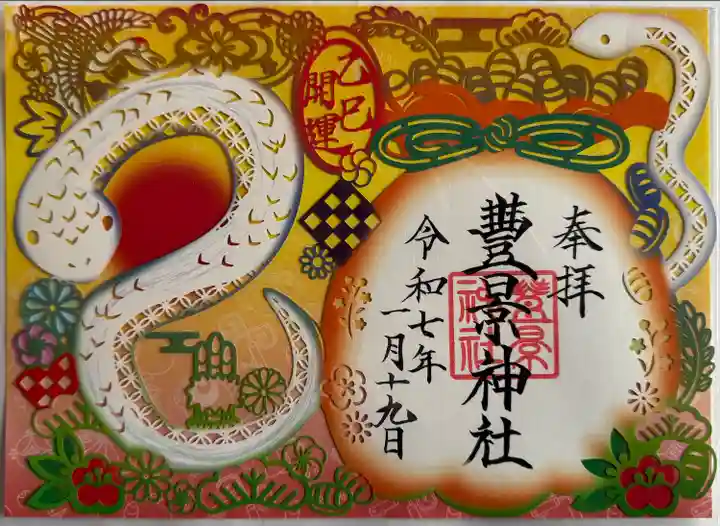 奉拝
豊景神社
豊景
神社
令和七年
一月十九日
乙巳
開運